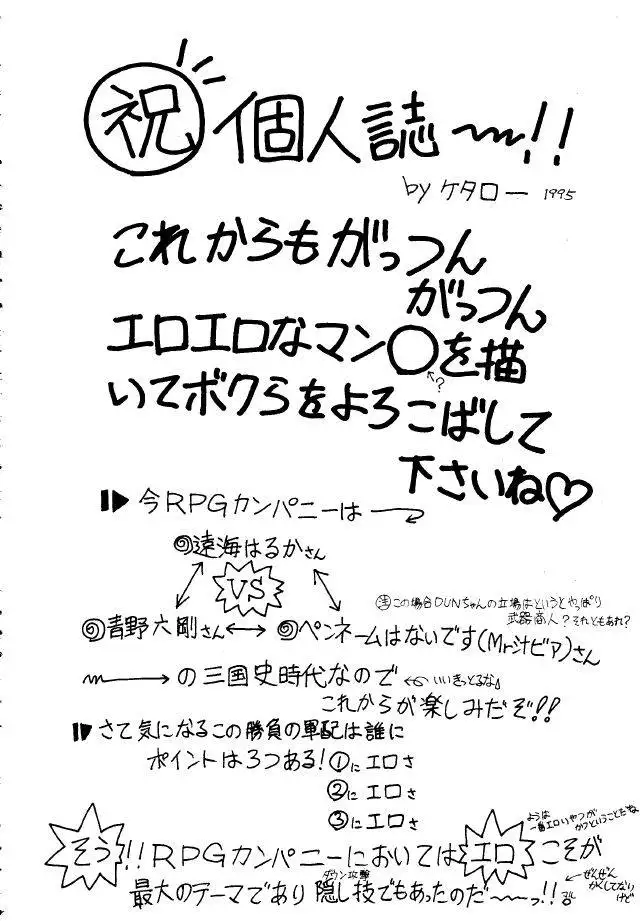 祝 個人誌〜!!
by ケタロー 1995
これからもがっつん
がっつん
エロエロなマン○を描
?
いてボクらをよろこばして
下さいね♡
今RPGカンパニーは
遠海はるかさん
VS
青野六剛さん ↔ ペンネームはないです(Mr汁ビア)さん
注この場合DUNちゃんの立場はというとやっぱり
武器商人?それともあれ?
〜→の三国史時代なので
←いいきっとるな。
これからが楽しみだぞ!!
さて気になるこの勝負の軍配は誰に
ポイントは3つある!①にエロさ
②にエロさ
③にエロさ
ようは
一番エロいやつが
かつということだね
そう!!RPGカンパニーにおいてはエロこそが
ダウン攻撃
最大のテーマであり隠し技でもあったのだ〜っ!!
←ぜんぜん
かくしてない
けど